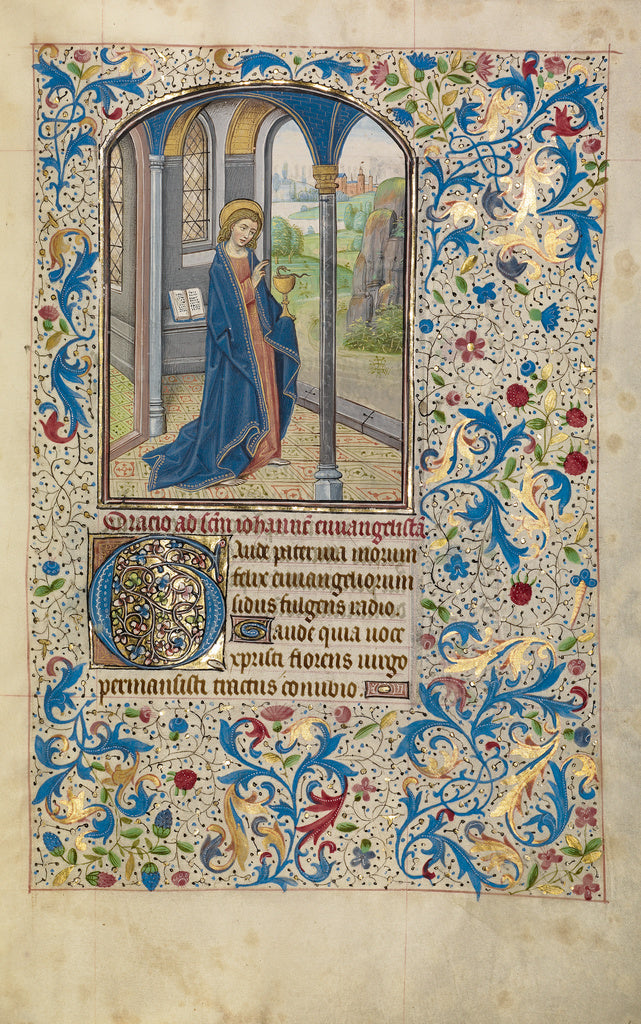 Oracio ad sc̃m iohannẽ euuangelistã
Gaude pater via morum
felix euuangeliorum
sidus fulgens radio.
Gaude quia uoce
xpristi florens uirgo
permansisti tractus conubio.